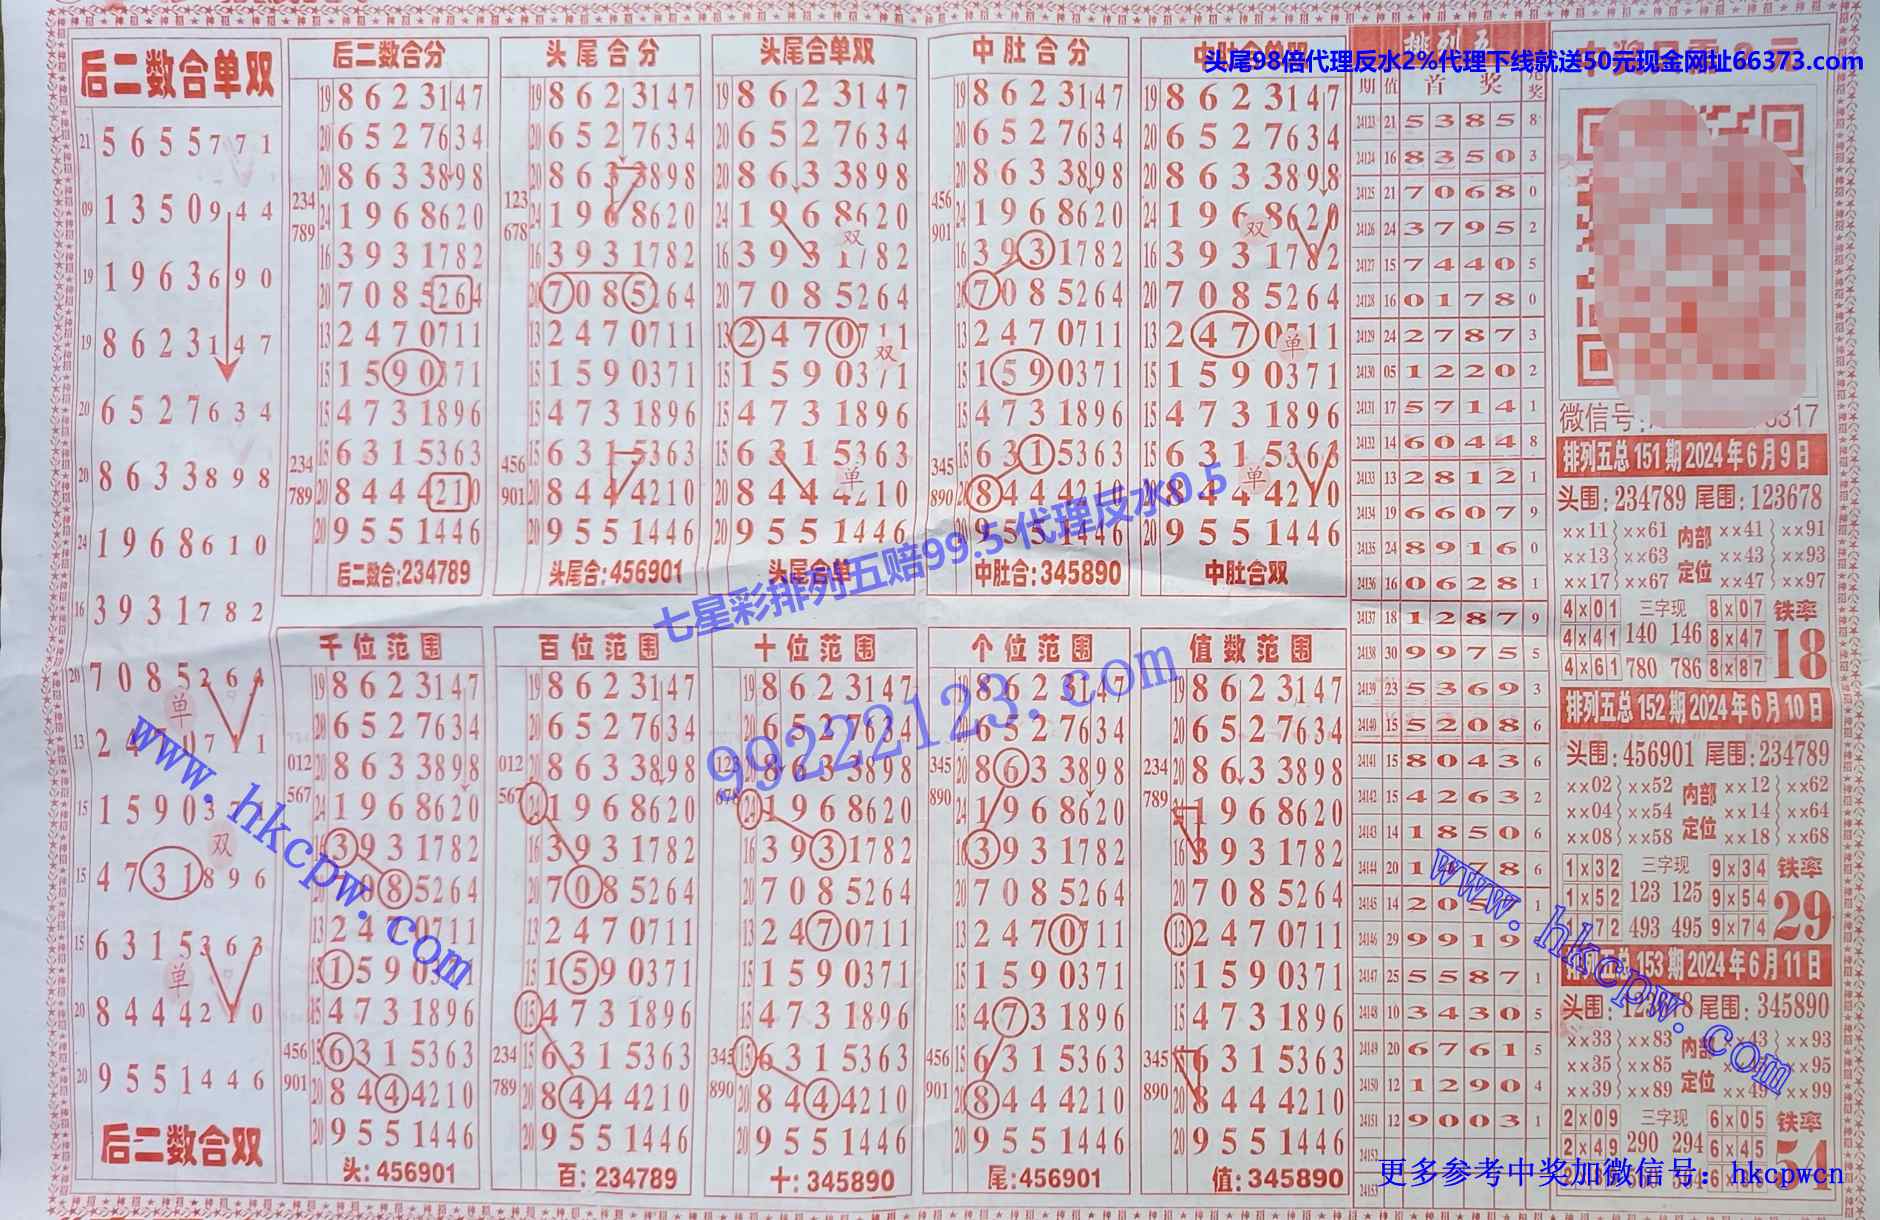 头尾98倍代理反水2%代理下线就送50元现金网址66373.com
后二数合单双
21 5 6 5 5 7 7 1
09 1 3 5 0 9 4 4
19 1 9 6 3 6 9 0
19 8 6 2 3 1 4 7
20 6 5 2 7 6 3 4
20 8 6 3 3 8 9 8
24 1 9 6 8 6 1 0
16 3 9 3 1 7 8 2
20 7 0 8 5 2 6 4
单
15 1 5 9 0 3
双
15 4 7 3 1 8 9 6
15 6 3 1 5 3 6 3
单
20 8 4 4 4 2 1 0
20 9 5 5 1 4 4 6
后二数合双
后二数合分
19 8 6 2 3147
20 6 5 2 7634
20 8 6 3 3898
234
789
24 1 9 6 8620
16 3 9 3 1782
20 7 0 8 5264
13 2 4 7 0711
15 1 5 9 0371
15 4 7 3 1896
15 6 3 1 5363
234
789
20 8 4 4 4210
20 9 5 5 1446
后二数合:234789
头尾合分
19 8 6 2 3147
20 6 5 2 7634
20 8 6 3 3898
123
678
24 1 9 6 8620
16 3 9 3 1782
20 7 0 8 5264
13 2 4 7 0711
15 1 5 9 0371
15 4 7 3 1896
15 6 3 1 5363
456
901
20 8 4 4 4210
20 9 5 5 1446
头尾合:456901
头尾合单双
19 8 6 2 3147
20 6 5 2 7634
20 8 6 3 3898
24 1 9 6 8620
双
16 3 9 3 1782
20 7 0 8 5264
13 2 4 7 0711
双
15 1 5 9 0371
15 4 7 3 1896
15 6 3 1 5363
单
20 8 4 4 4210
20 9 5 5 1446
头尾合单
中肚合分
19 8 6 2 3147
20 6 5 2 7634
20 8 6 3 3898
456
901
24 1 9 6 8620
16 3 9 3 1782
20 7 0 8 5264
13 2 4 7 0711
15 1 5 9 0371
15 4 7 3 1896
15 6 3 1 5363
345
890
20 8 4 4 4210
20 9 5 5 1446
中肚合:345890
中肚合单双
19 8 6 2 3147
20 6 5 2 7634
20 8 6 3 3898
24 1 9 6 8620
双
16 3 9 3 1782
20 7 0 8 5264
13 2 4 7 0711
单
15 1 5 9 0371
15 4 7 3 1896
15 6 3 1 5363
单
20 8 4 4 4210
20 9 5 5 1446
中肚合双
七星彩排列五赔99.5 代理反水0.5
99222123.com
千位范围
19 8 6 2 3147
20 6 5 2 7634
20 8 6 3 3898
012
567
24 1 9 6 8620
16 3 9 3 1782
20 7 0 8 5264
13 2 4 7 0711
15 1 5 9 0371
15 4 7 3 1896
15 6 3 1 5363
456
901
20 8 4 4 4210
20 9 5 5 1446
头: 456901
百位范围
19 8 6 2 3147
20 6 5 2 7634
20 8 6 3 3898
012
567
24 1 9 6 8620
16 3 9 3 1782
20 7 0 8 5264
13 2 4 7 0711
15 1 5 9 0371
15 4 7 3 1896
15 6 3 1 5363
234
789
20 8 4 4 4210
20 9 5 5 1446
百: 234789
十位范围
19 8 6 2 3147
20 6 5 2 7634
20 8 6 3 3898
123
678
24 1 9 6 8620
16 3 9 3 1782
20 7 0 8 5264
13 2 4 7 0711
15 1 5 9 0371
15 4 7 3 1896
15 6 3 1 5363
345
890
20 8 4 4 4210
20 9 5 5 1446
十: 345890
个位范围
19 8 6 2 3147
20 6 5 2 7634
20 8 6 3 3898
345
890
24 1 9 6 8620
16 3 9 3 1782
20 7 0 8 5264
13 2 4 7 0711
15 1 5 9 0371
15 4 7 3 1896
15 6 3 1 5363
456
901
20 8 4 4 4210
20 9 5 5 1446
尾:456901
值数范围
19 8 6 2 3147
20 6 5 2 7634
20 8 6 3 3898
234
789
24 1 9 6 8620
16 3 9 3 1782
20 7 0 8 5264
13 2 4 7 0711
15 1 5 9 0371
15 4 7 3 1896
15 6 3 1 5363
345
890
20 8 4 4 4210
20 9 5 5 1446
值: 345890
排列五
期 值 首 奖
24123 21 5 3 8 5 8
24124 16 8 3 5 0 3
24125 21 7 0 6 8 0
24126 24 3 7 9 5 2
24127 15 7 4 4 0 5
24128 16 0 1 7 8 0
24129 24 2 7 8 7 3
24130 05 1 2 2 0 2
24131 17 5 7 1 4 1
24132 14 6 0 4 4 8
24133 13 2 8 1 2 1
24134 19 6 6 0 7 9
24135 24 8 9 1 6 0
24136 16 0 6 2 8 1
24137 18 1 2 8 7 9
24138 30 9 9 7 5 5
24139 23 5 3 6 9 3
24140 15 5 2 0 8 6
24141 15 8 0 4 3 6
24142 15 4 2 6 3 2
24143 14 1 8 5 0 6
24144 20 1 4 7 8 6
24145 14 2 0
24146 29 9 9 1 9
24147 25 5 5 8 7 1
24148 10 3 4 3 0 5
24149 20 6 7 6 1 5
24150 12 1 2 9 0 4
24151 12 9 0 0 3 1
24152
24153
微信号:
排列五总151期2024年6月9日
头围:234789 尾围:123678
××11 ××61 内部 ××41 ××91
××13 ××63 ××43 ××93
××17 ××67 定位 ××47 ××97
4×01 三字现 8×07 铁率
4×41 140 146 8×47 18
4×61 780 786 8×87
排列五总152期2024年6月10日
头围:456901 尾围:234789
××02 ××52 内部 ××12 ××62
××04 ××54 ××14 ××64
××08 ××58 定位 ××18 ××68
1×32 三字现 9×34 铁率
1×52 123 125 9×54 29
1×72 493 495 9×74
排列五总153期2024年6月11日
头围: 尾围:345890
××33 ××83 内部 ××43 ××93
××35 ××85 ××95
××39 ××89 定位 ××49 ××99
2×09 三字现 6×05 铁率
2×49 290 294 6×45 54
www.hkcpw.com
www.hkcpw.com
更多参考中奖加微信号：hkcpwcn